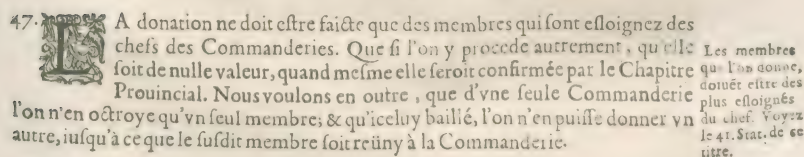 47. LA donation ne doit eſtre faicte que des membres qui ſont eſloignez des
chefs des Commanderies. Que ſi l'on y procede autrement, qu'elle
ſoit de nulle valeur, quand meſme elle ſeroit confirmée par le Chapitre
Prouincial. Nous voulons en outre, que d'vne ſeule Commanderie
l'on n'en octroye qu'vn ſeul membre; & qu'iceluy baillé, l'on n'en puiſſe donner vn
autre, iuſqu'à ce que le ſuſdit membre ſoit reüny à la Commanderie.
Les membres
que l'on donne,
doiuẽt eſtre des
plus eſloignés
du chef. Voyez
le 41. Stat. de ce
titre.